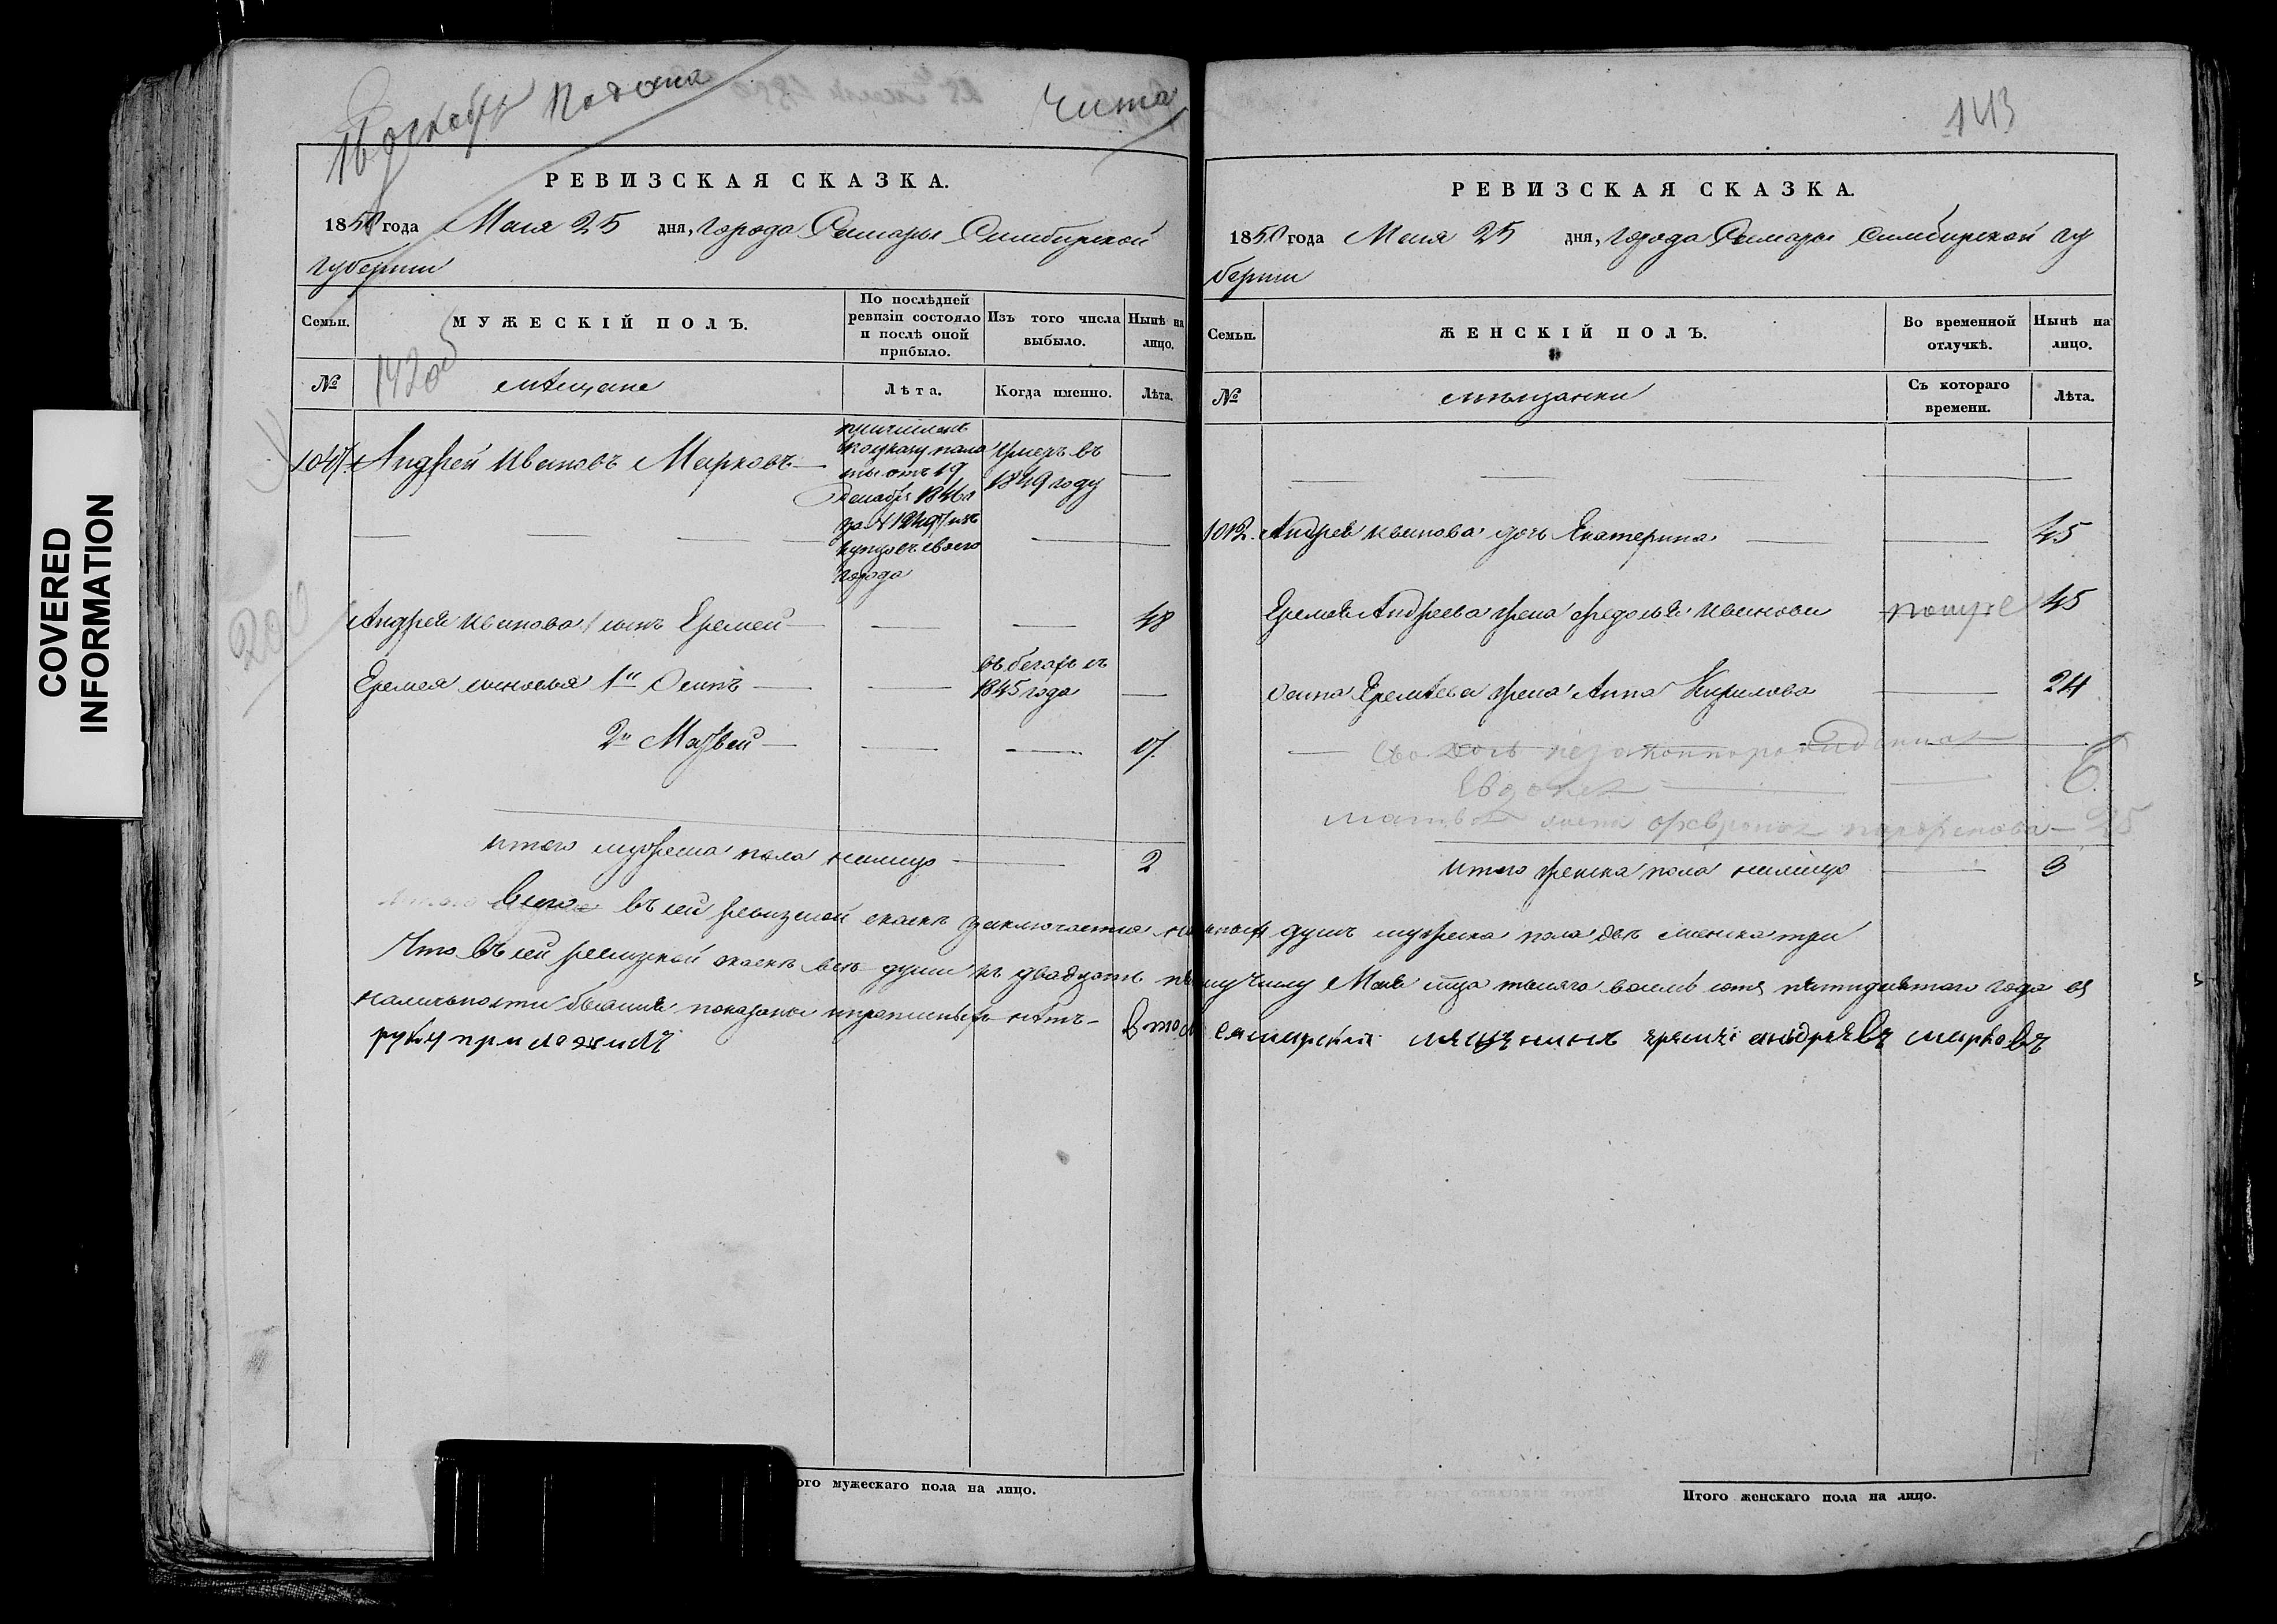 COVERED
INFORMATION
16 октября Подана
Чита
РЕВИЗСКАЯ СКАЗКА.
1850 года Мая 25 дня, города Самары Симбирской
губернии
Семьи.
МУЖЕСКІЙ ПОЛЪ.
По послѣдней
ревизіи состояло
и послѣ оной
прибыло.
Изъ того числа
выбыло.
Нынѣ на
лицо.
№
мѣщане
Лѣта.
Когда именно.
Лѣта.
1047. Андрей Ивановъ Марковъ
причисленъ
по указу пала
ты отъ 19
декабря 1846 г
за № 12497 изъ
купцовъ своего
города
умеръ въ
1849 году
Андрея Иванова сынъ Еремей 48
Еремея сыновья 1й Осипъ
въ бегахъ съ
1845 года
2й Матвей 17.
итого мужеска пола налицо 2
143
РЕВИЗСКАЯ СКАЗКА.
1850 года Мая 25 дня, города Самары Симбирской гу
берніи
Семьи.
ЖЕНСКІЙ ПОЛЪ.
Во временной
отлучкѣ.
Нынѣ на
лицо.
№
мѣщанки
Съ котораго
времени.
Лѣта.
1012. Андрея Иванова дочь Екатерина 45
Еремея Андреева жена Иванова 45
Осипа Еремѣева жена Анна Кирилова 24
Его дочь незаконнорожденная
Евдокия 6
Матвея жена Феврония Парфенова 25
итого женска пола налицо 3
Всего въ сей ревизской сказкѣ заключается наличныхъ душъ мужеска пола двѣ женска три
Что въ сей ревизской сказкѣ всѣ души къ двадцать пятому числу Мая м-ца тысяча восемь сотъ пятидесятаго года въ
наличности бывшие показаны и прописныхъ нѣтъ – в том самарский мещенинъ еремей андреевъ марковъ
руку приложилъ
ого мужескаго пола на лицо.
Итого женскаго пола на лицо.